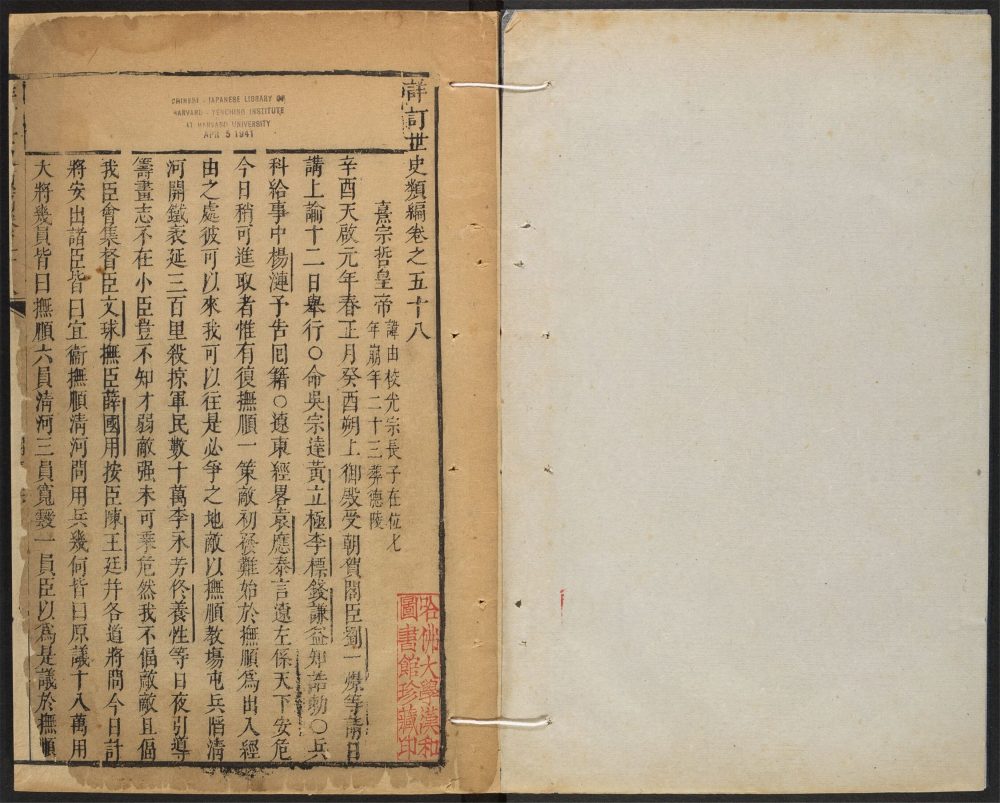 詳訂世史類編卷之五十八
熹宗哲皇帝
諱由校光宗長子在位七
年朋年二十三葬德陵
辛酉天啟元年春正月癸酉朔上御殿受朝賀閣臣劉一燝等請日
講上諭十二日舉行○命吳宗達黃立極李標錢謙益知誥勅○兵
科給事中楊漣予告囘籍○遼東經畧袁應泰言遼左係天下安危
今日稍可進取者惟有復撫順一策敵初發難始於撫順爲出入經
由之處彼可以來我可以往是必爭之地敵以撫順教塲屯兵傋清
河開鐵袤延三百里殺掠軍民數十萬李永芳佟養性等日夜引導
籌畫志不在小臣豈不知才弱敵强未可乘危然我不偪敵敵且偪
我臣會集督臣文球撫臣薛國用按臣陳王廷幷各道將問今日計
將安出諸臣皆曰宜衞撫順清河問用兵幾何皆曰原議十八萬用
大將幾員皆曰撫順六員清河三員寬靉一員臣以爲是議於撫順
CHINESE - JAPANESE LIBRARY OF
HARVARD - YENCHING INSTITUTE
AT HARVARD UNIVERSITY
APR 5 1941
哈佛大學漢和
圖書館珍藏印